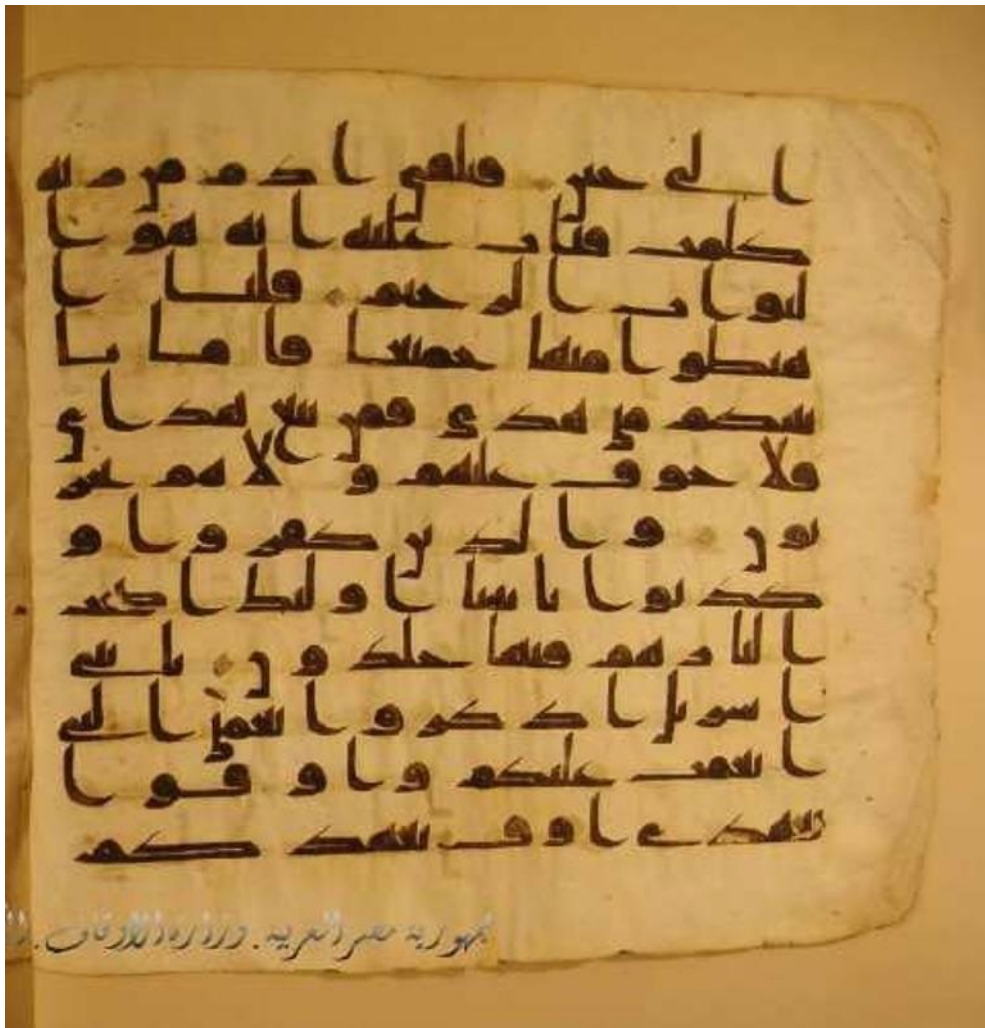 ا لى حين فتلقى ا د م من ر به
كلمت فتا ب عليه ا نه هو ا
لتوا ب ا لر حيم قلنا ا
هبطو ا منها جميعا فا ما يا
تينكم منى هد ى فمن تبع هد ا ى
فلا خو ف عليهم و لا هم يحز
نو ن و ا لذ ين كفر و ا و
كذ بو ا با يتنا ا و لئك ا صحب
ا لنا ر هم فيها خلد و ن يا بنى
ا سر يل ا ذ كر و ا نعمتى ا لتى
ا نعمت عليكم و ا و فو ا
بعهد ى ا و ف بعهد كم
جمهورية مصر العربية . وزارة الأوقاف .